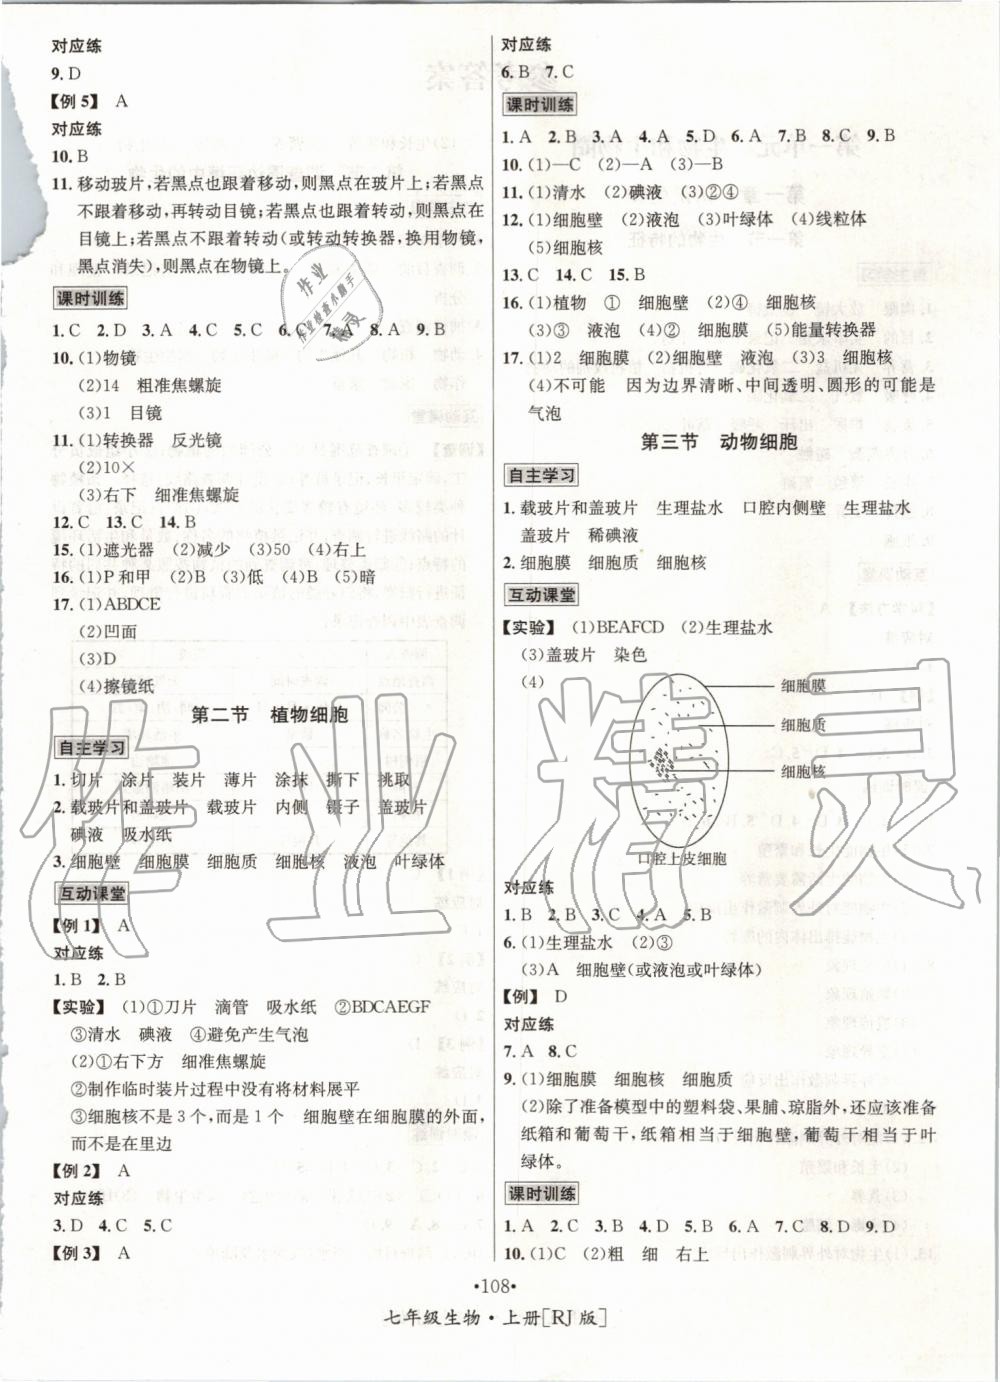 对应练
9. D
【例 5】 A
对应练
10. B
11. 移动玻片，若黑点也跟着移动，则黑点在玻片上；若黑点
不跟着移动，再转动目镜；若黑点跟着移动，则黑点在
目镜上；若黑点不跟着转动(或转动转换器，换用物镜，
黑点消失)，则黑点在物镜上。
课时训练
1. C 2. D 3. A 4. C 5. C 6. C 7. A 8. A 9. B
10. (1)物镜
(2)14 粗准焦螺旋
(3)1 目镜
11. (1)转换器 反光镜
(2)10×
(3)右下 细准焦螺旋
12. C 13. C 14. B
15. (1)遮光器 (2)减少 (3)50 (4)右上
16. (1)P 和甲 (2)B (3)低 (4)B (5)暗
17. (1)ABDCE
(2)凹面
(3)D
(4)擦镜纸
第二节 植物细胞
自主学习
1. 切片 涂片 装片 薄片 涂抹 撕下 挑取
2. 载玻片和盖玻片 载玻片 内侧 镊子 盖玻片
碘液 吸水纸
3. 细胞壁 细胞膜 细胞质 细胞核 液泡 叶绿体
互动课堂
【例 1】 A
对应练
1. B 2. B
【实验】 (1)①刀片 滴管 吸水纸 ②BDCAEGF
③清水 碘液 ④避免产生气泡
(2)①右下方 细准焦螺旋
②制作临时装片过程中没有将材料展平
③细胞核不是 3 个，而是 1 个 细胞壁在细胞膜的外面，
而不是在里边
【例 2】 A
对应练
3. D 4. C 5. C
【例 3】 A
对应练
6. B 7. C
课时训练
1. A 2. B 3. A 4. A 5. D 6. A 7. B 8. C 9. B
10. (1)—C (2)—A (3)—B
11. (1)清水 (2)碘液 (3)②④
12. (1)细胞壁 (2)液泡 (3)叶绿体 (4)线粒体
(5)细胞核
13. C 14. C 15. B
16. (1)植物 ① 细胞壁 (2)④ 细胞核
(3)③ 液泡 (4)② 细胞膜 (5)能量转换器
17. (1)2 细胞膜 (2)细胞壁 液泡 (3)3 细胞核
(4)不可能 因为边界清晰、中间透明、圆形的可能是
气泡
第三节 动物细胞
自主学习
1. 载玻片和盖玻片 生理盐水 口腔内侧壁 生理盐水
盖玻片 稀碘液
2. 细胞膜 细胞质 细胞核
互动课堂
【实验】 (1)BEAFCD (2)生理盐水
(3)盖玻片 染色
(4)
细胞膜
细胞质
细胞核
口腔上皮细胞
对应练
1. B 2. B 3. C 4. A 5. B
6. (1)生理盐水 (2)③
(3)A 细胞壁(或液泡或叶绿体)
【例】 D
对应练
7. A 8. C
9. (1)细胞膜 细胞核 细胞质
(2)除了准备模型中的塑料袋、果脯、琼脂外，还应该准备
纸箱和葡萄干，纸箱相当于细胞壁，葡萄干相当于叶
绿体。
课时训练
1. A 2. C 3. B 4. D 5. B 6. A 7. C 8. D 9. D
10. (1)C (2)粗 细 右上
·108·
七年级生物·上册[RJ版]
作业精灵